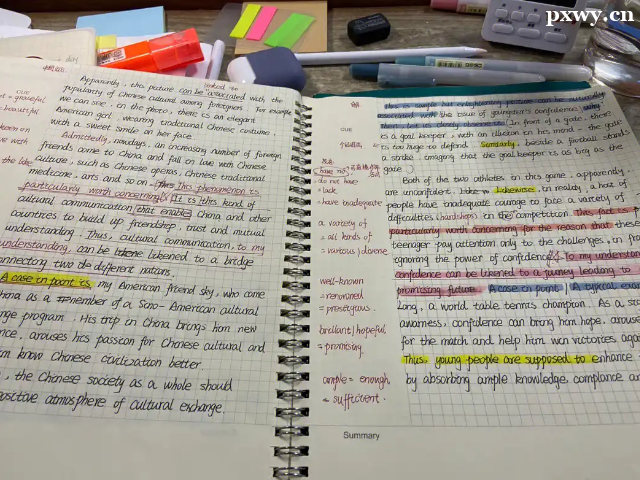 pxwy.cn
cue
Apparently, this picture can be associated with the
popularity of Chinese cultural among foreigners. For example
we can see, in the photo, there is an elegant
American girl, wearing traditional Chinese costume
with a sweet smile on her face.
Admittedly, nowadays, an increasing number of foreign
friends come to China and fall in love with Chinese
culture, such as Chinese operas, Chinese traditional
medicine, arts and so on. This phenomenon is
particularly worth concerning. It is this kind of
cultural communication that enables China and other
countries to build up friendship, trust and mutual
understanding. Thus, cultural communication, to my
understanding, can be likened to a bridge
connecting two different nations.
A case in point is, my American friend sky, who come
China as a member of a Sino-American cultural
program. His trip in China brings him new
arouses his passion for Chinese cultural and
know Chinese civilization better.
, the Chinese society as a whole should
positive atmosphere of cultural exchange.
cue
have no
do not have
= lack
= have inadequate
a variety of
= all kinds of
= various / diverse
well-known
= renowned
= prestigious.
brilliant / hopeful
= promising
ample = enough
= sufficient.
associated with the issue of youngster's confidence,
In front of a gate, there
is a goal keeper, with an illusion in his mind - the goal
is too huge to defend. Similarly, beside a football stands
a strike, imagining that the goal keeper is as big as the
gate.
Both of the two athletes in this game, apparently,
are unconfident. Likewise, in reality, a host of
people have inadequate courage to face a variety of
difficulties (hardships) in the competition. This fact
particularly worth concerning for the reason that these
teenager pay attention only to the challenges, in
ignoring the power of confidence. To my understand
confidence can be likened to a journey leading to
promising future. A case in point A typical
Long, a world table tennis champion. As a
awareness, confidence can bring him hope, arouse
for the match and help him win victories
Thus, young people are supposed to enhance
by absorbing ample knowledge,
Summary